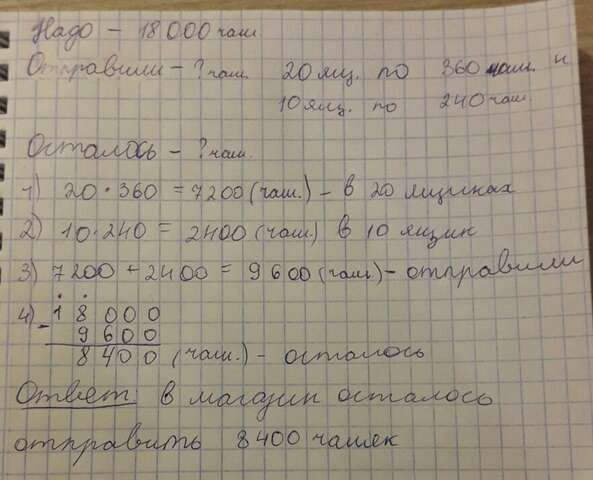 Надо - 18000 чаш.
Отправили - ? чаш. 20 ящ. по 360 чаш. и
10 ящ. по 240 чаш.
Осталось - ? чаш.
1) 20 · 360 = 7200 (чаш.) - в 20 ящиках
2) 10 · 240 = 2400 (чаш.) в 10 ящик
3) 7200 + 2400 = 9600 (чаш.) - отправили
4) 18000
- 9600
8400 (чаш.) - осталось
Ответ: в магазин осталось
отправить 8400 чашек